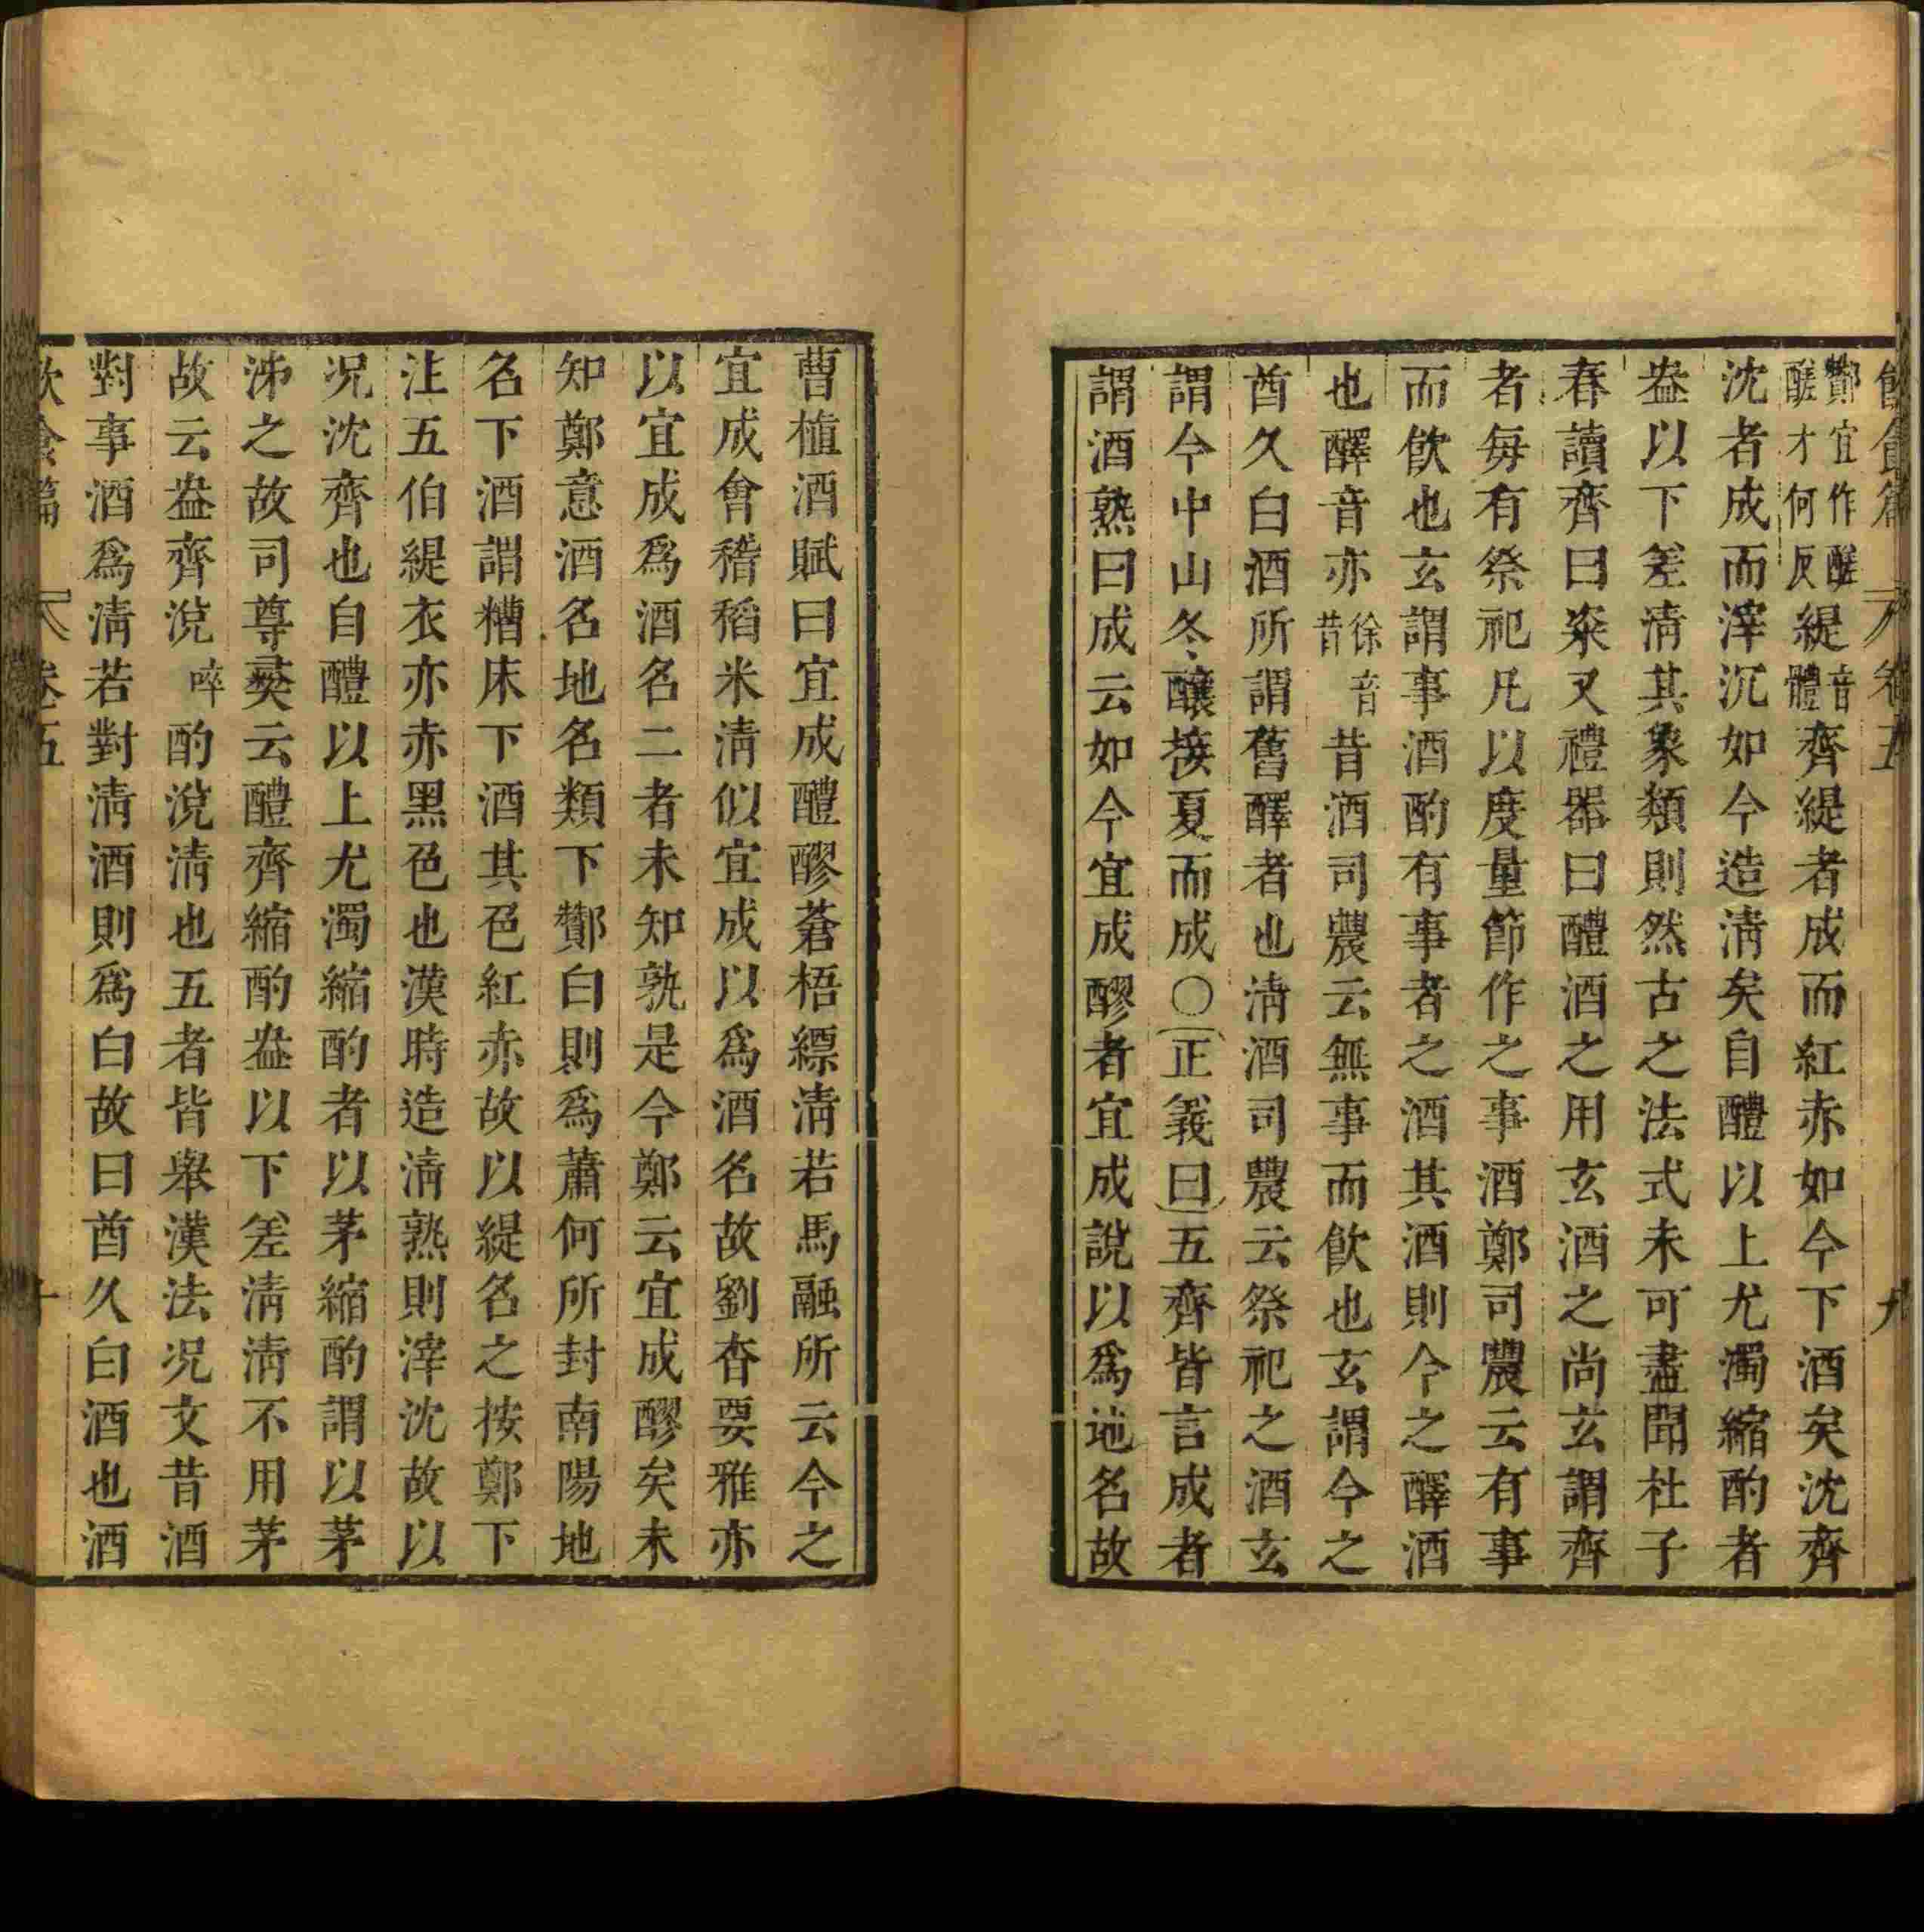 飲食篇 卷五 九
酇宜作醝醝才何反緹音體齊緹者成而紅赤如今下酒矣沈齊
沈者成而滓沉如今造淸矣自醴以上尤濁縮酌者
盎以下差淸其象類則然古之法式未可盡聞杜子
春讀齊曰粢又禮器曰醴酒之用玄酒之尚玄謂齊
者每有祭祀凡以度量節作之事酒鄭司農云有事
而飮也玄謂事酒酌有事者之酒其酒則今之醳酒
也醳音亦徐音昔昔酒司農云無事而飮也玄謂今之
酋久白酒所謂舊醳者也淸酒司農云祭祀之酒玄
謂今中山冬釀接夏而成〇正義曰五齊皆言成者
謂酒熟曰成云如今宜成醪者宜成說以爲地名故
曹植酒賦曰宜成醴醪蒼梧縹淸若馬融所云今之
宜成會稽稻米淸似宜成以爲酒名故劉杳要雅亦
以宜成爲酒名二者未知孰是今鄭云宜成醪矣未
知鄭意酒名地名類下酇白則爲蕭何所封南陽地
名下酒謂糟床下酒其色紅赤故以緹名之按鄭下
注五伯緹衣亦赤黑色也漢時造淸熟則滓沈故以
况沈齊也自醴以上尤濁縮酌者以茅縮酌謂以茅
泲之故司尊彝云醴齊縮酌盎以下差淸淸不用茅
故云盎齊涗啐酌涗淸也五者皆舉漢法况文昔酒
對事酒爲淸若對淸酒則爲白故曰酋久白酒也酒
飲食篇 卷五 十